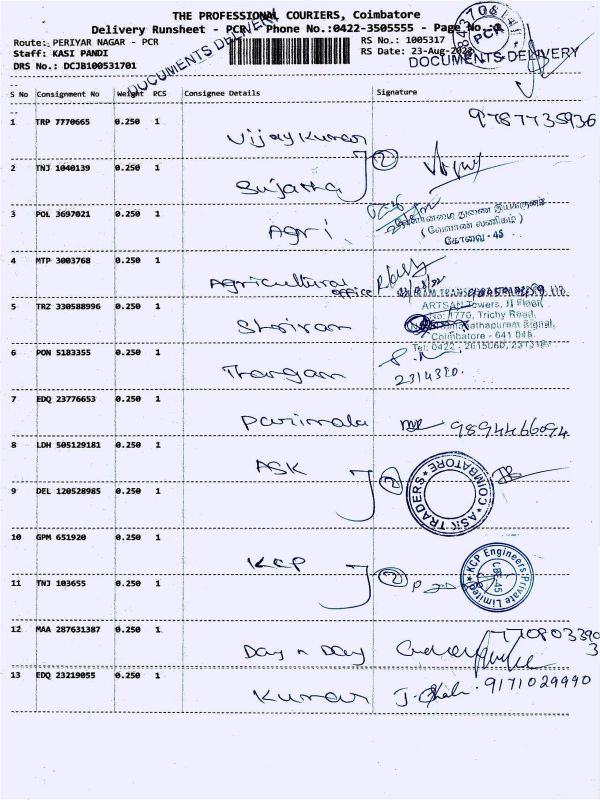 THE PROFESSIONAL COURIERS, Coimbatore
Delivery Runsheet - PCR Phone No.:0422-3505555 - Page No.
Route: PERIYAR NAGAR - PCR
RS No.: 1005317
Staff: KASI PANDI
RS Date: 23-Aug-
DRS No.: DCJB100531701
DOCUMENTS DELIVERY
DOCUMENTS-DELIVERY
PCR
S No Consignment No Weight PCS Consignee Details Signature
1 TRP 7770665 0.250 1 Vijaykumar 9787735936
2 TNJ 1040139 0.250 1 Sujatha 2
3 POL 3697021 0.250 1 Agri
(வேளாண் வணிகம்)
கோவை - 45
4 MTP 3003768 0.250 1 Agricultural office
5 TRZ 330588996 0.250 1 Shriram
ARTSAN Towers, II Floor,
No: 1770, Trichy Road,
Ramanathapuram Signal,
Coimbatore - 641 045.
6 PON 5183355 0.250 1 Thangam
2314320.
7 EDQ 23776653 0.250 1 Parimala 9894466094
8 LDH 505129181 0.250 1 ASK
9 DEL 120528985 0.250 1 2
ASK TRADERS ★ COIMBATORE ★
10 GPM 651920 0.250 1 KCP
11 TNJ 103655 0.250 1 2
KCP Engineers Private Limited
CBE-45
12 MAA 287631387 0.250 1 Day n Day 7708033903
13 EDQ 23219055 0.250 1 Kumar 9171029990